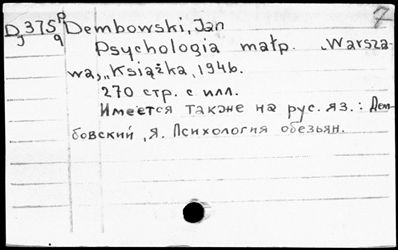 Dj 375 P/q Dembowski, Jan 7
Psychologia małp. Warsza-
wa, „Książka, 1946.
270 стр. с илл.
Имеется также на рус. яз.: Дем-
бовский, Я. Психология обезьян.